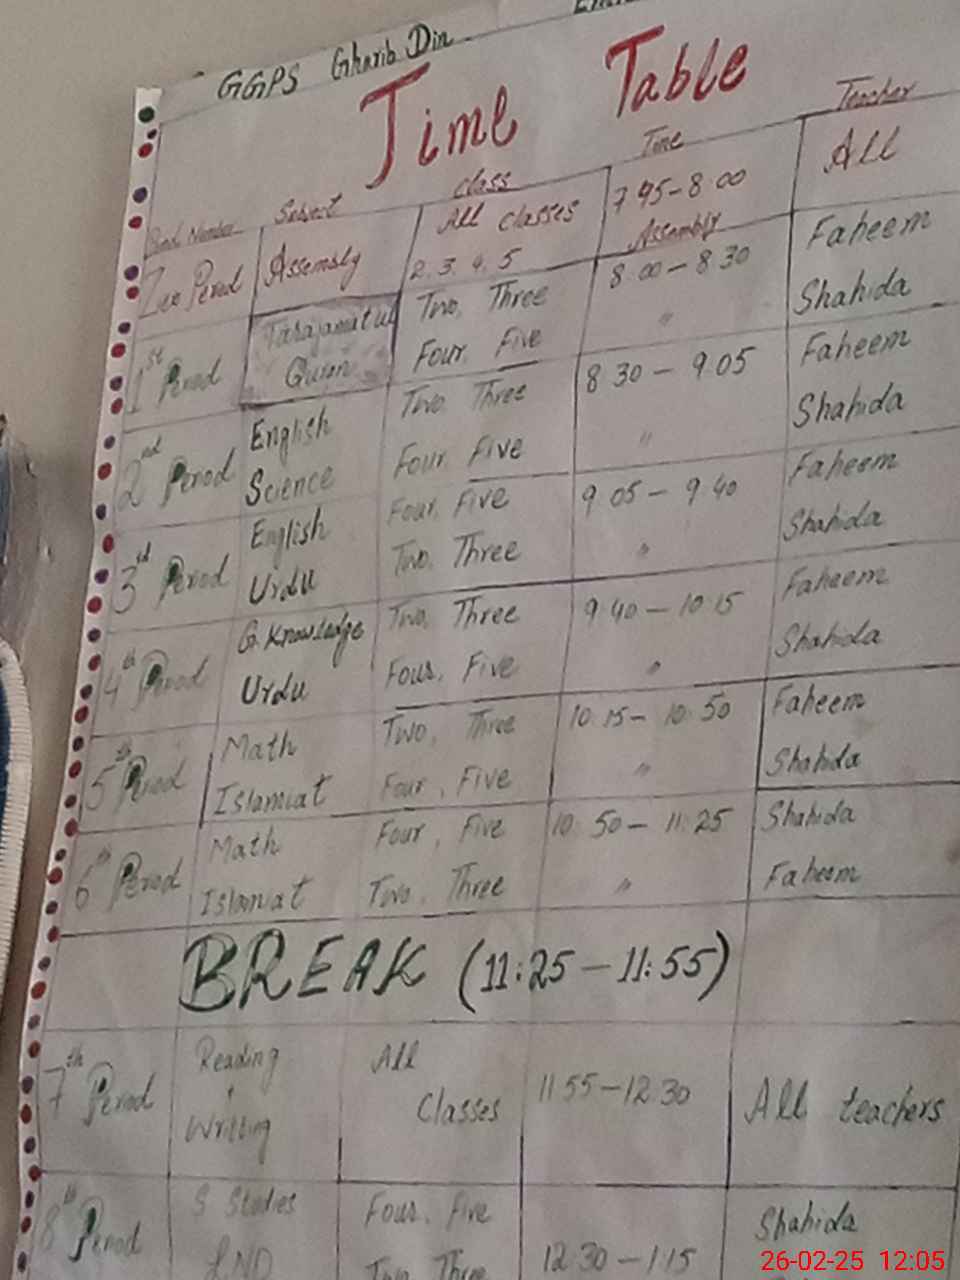 GGPS Gharib Din
Time Table
Period Number Subject Class Time Teacher
Zero Period Assembly All classes 7:45-8:00 All
2.3.4.5 Assembly
1st Period Tarajamatul Two, Three 8:00-8:30 Faheem
Quran Four, Five " Shahida
2nd Period English Two, Three 8:30-9:05 Faheem
Science Four, Five " Shahida
3rd Period English Four, Five 9:05-9:40 Faheem
Urdu Two, Three " Shahida
4th Period G. Knowledge Two, Three 9:40-10:15 Faheem
Urdu Four, Five " Shahida
5th Period Math Two, Three 10:15-10:50 Faheem
Islamiat Four, Five " Shahida
6th Period Math Four, Five 10:50-11:25 Shahida
Islamiat Two, Three " Faheem
BREAK (11:25-11:55)
7th Period Reading All 11:55-12:30 All teachers
+ Classes
Writting
8th Period S Studies Four, Five 12:30-1:15 Shahida
Two, Three
26-02-25 12:05